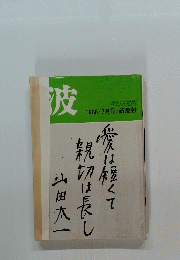 波
愛は短くて
親切は長し
山田太一